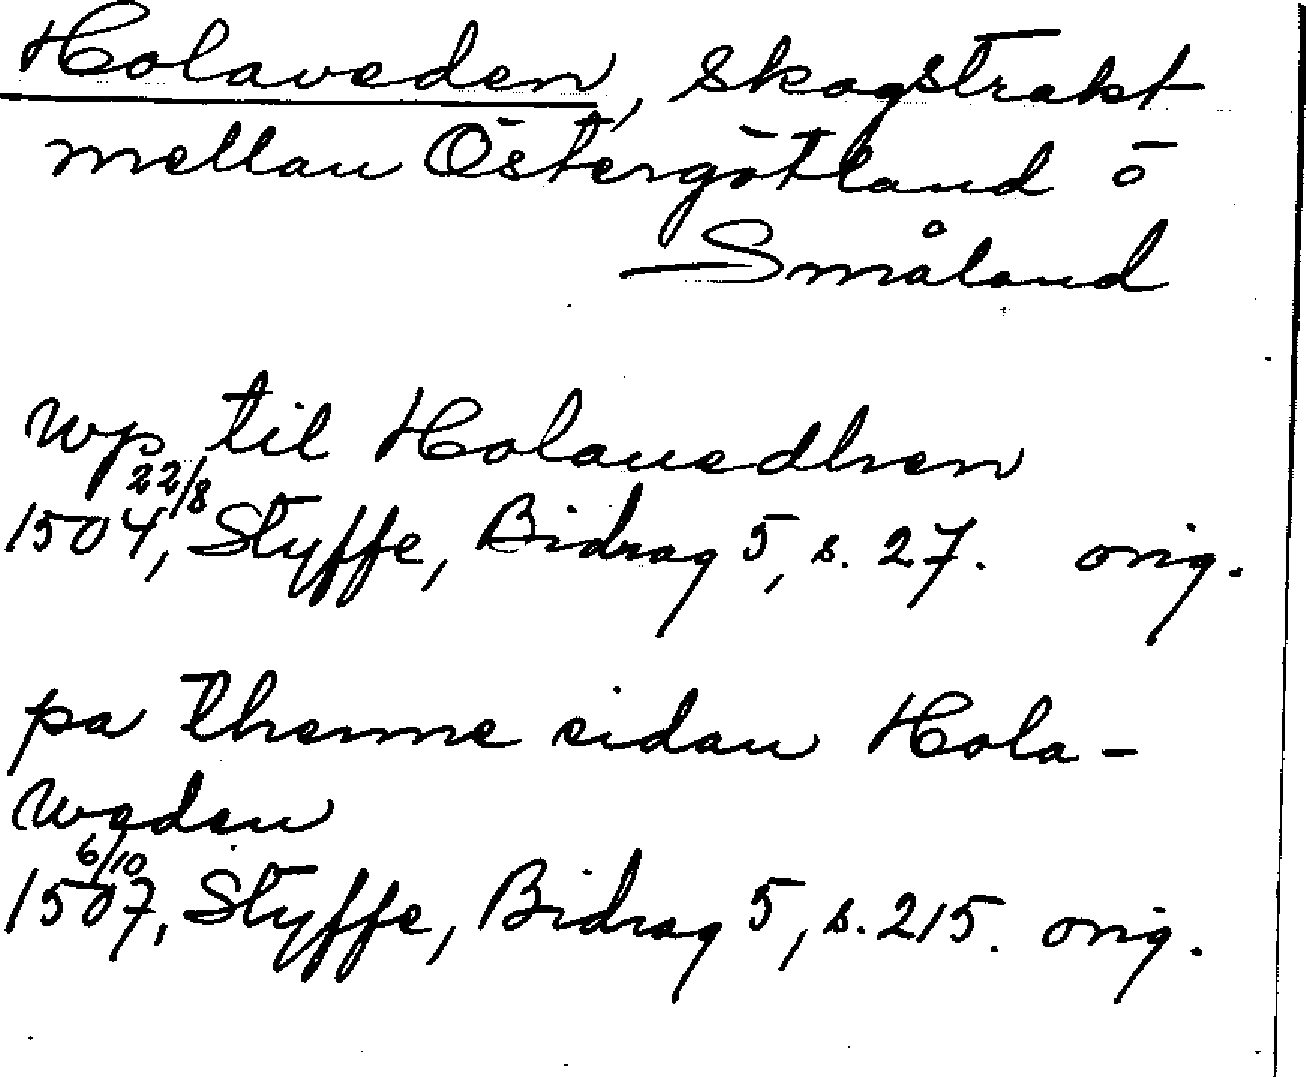 Holaveden, skogstrakt
mellan Östergötland o
Småland
wp til Holauedhen
22/8
1504, Styffe, Bidrag 5, s. 27. orig.
pa thenne sidan Hola-
weden
6/10
1507, Styffe, Bidrag 5, s. 215. orig.